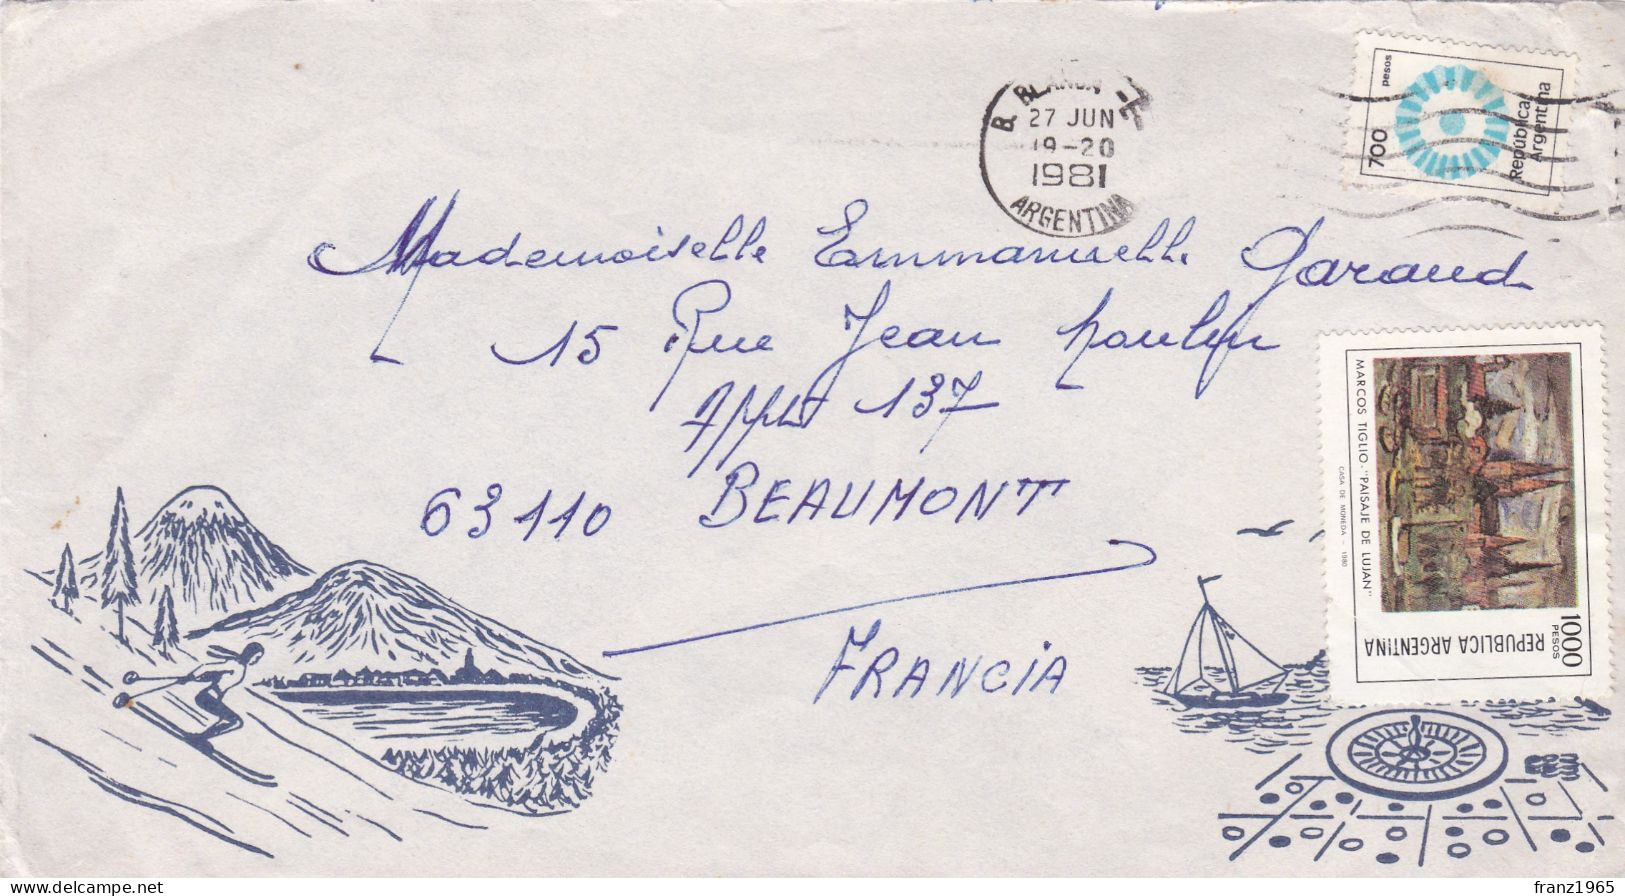 B. BLANCA
27 JUN
19-20
1981
ARGENTINA
700 pesos
República
Argentina
Mademoiselle Emmanuelle Garaud
15 Rue Jean Moulin
Appt 137
63110 BEAUMONT
FRANCIA
MARCOS TIGLIO. "PAISAJE DE LUJAN"
CASA DE MONEDA - 1980
1000
PESOS
REPUBLICA ARGENTINA
franz1965